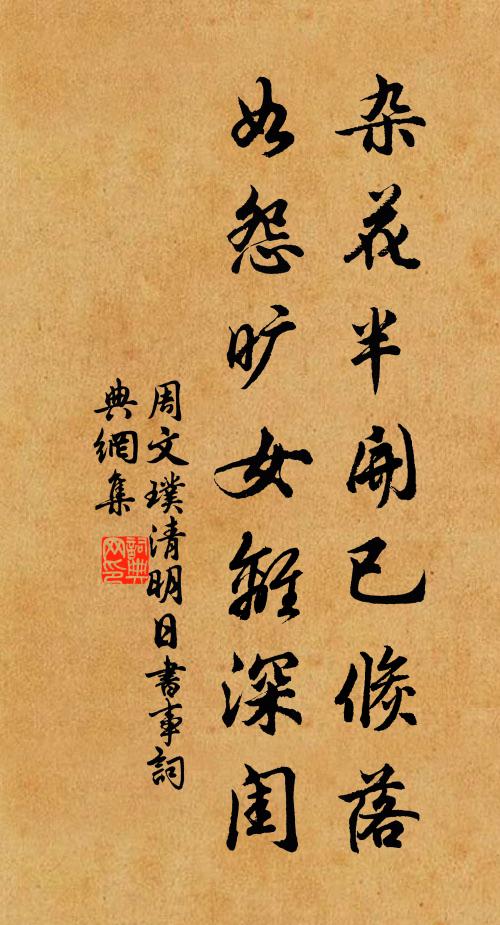 杂花半开已倏落
如怨旷女离深闺
周文璞清明日书事词
典網集
詞典
网印